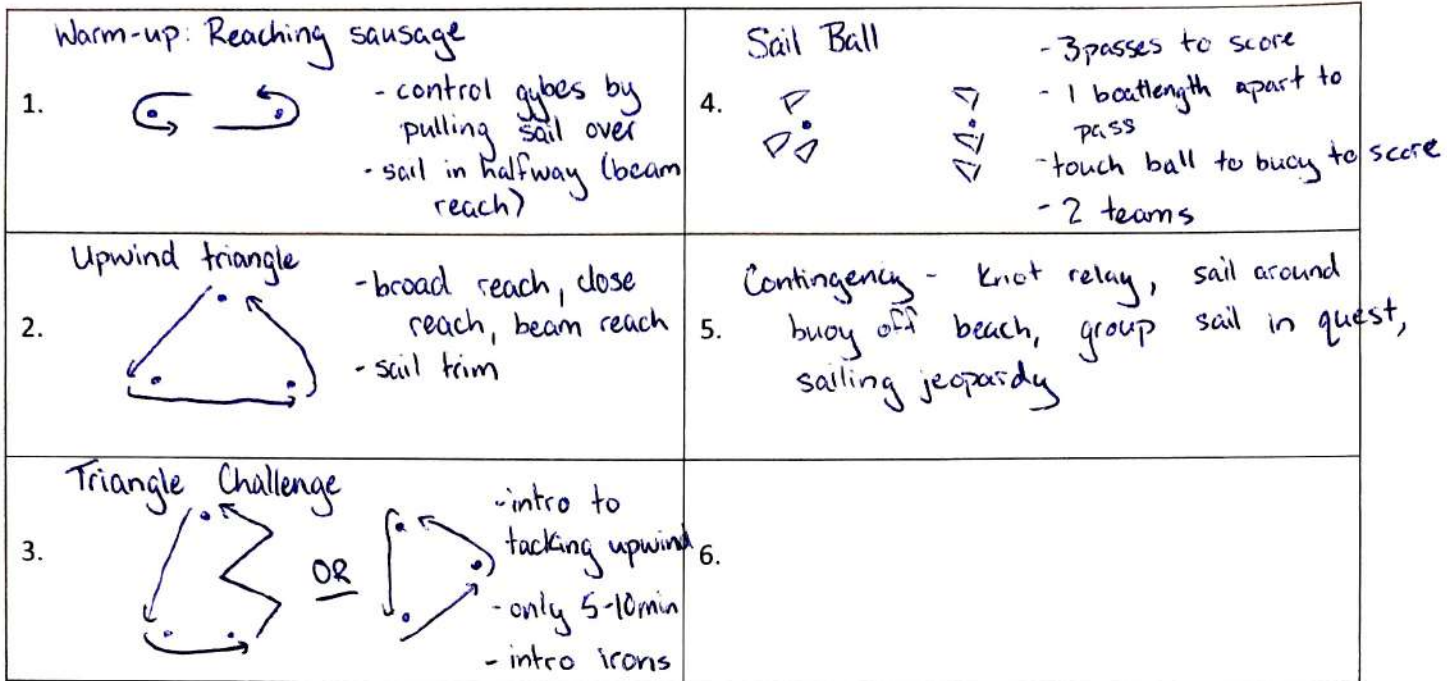 Warm-up: Reaching sausage
1.
- control gybes by
pulling sail over
- sail in halfway (beam
reach)
Upwind triangle
2.
- broad reach, close
reach, beam reach
- sail trim
Triangle Challenge
3.
OR
- intro to
tacking upwind
- only 5-10min
- intro irons
Sail Ball
4.
- 3 passes to score
- 1 boatlength apart to
pass
- touch ball to buoy to score
- 2 teams
5.
Contingency - knot relay, sail around
buoy off beach, group sail in quest,
sailing jeopardy
6.